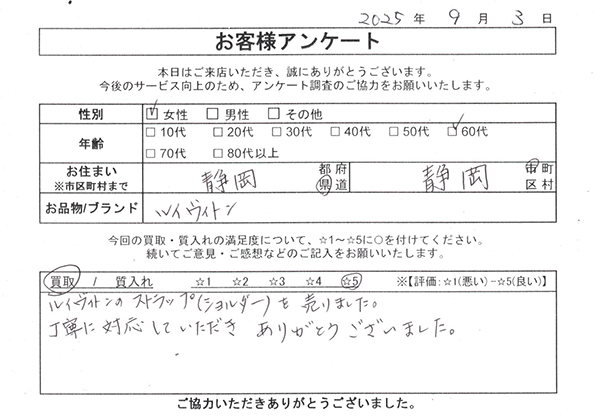 2025年 9月 3日
お客様アンケート
本日はご来店いただき、誠にありがとうございます。
今後のサービス向上のため、アンケート調査のご協力をお願いいたします。
性別 ☑女性 □男性 □その他
年齢 □10代 □20代 □30代 □40代 □50代 ☑60代
□70代 □80代以上
お住まい ※市区町村まで 静岡 都府県道 静岡 市町区村
お品物/ブランド ルイヴィトン
今回の買取・質入れの満足度について、☆1～☆5に○を付けてください。
続いてご意見・ご感想などのご記入をお願いいたします。
買取 / 質入れ ☆1 ☆2 ☆3 ☆4 ☆5 ※【評価:☆1(悪い)-☆5(良い)】
ルイヴィトンのストラップ(ショルダー)を売りました。
丁寧に対応していただきありがとうございました。
ご協力いただきありがとうございました。